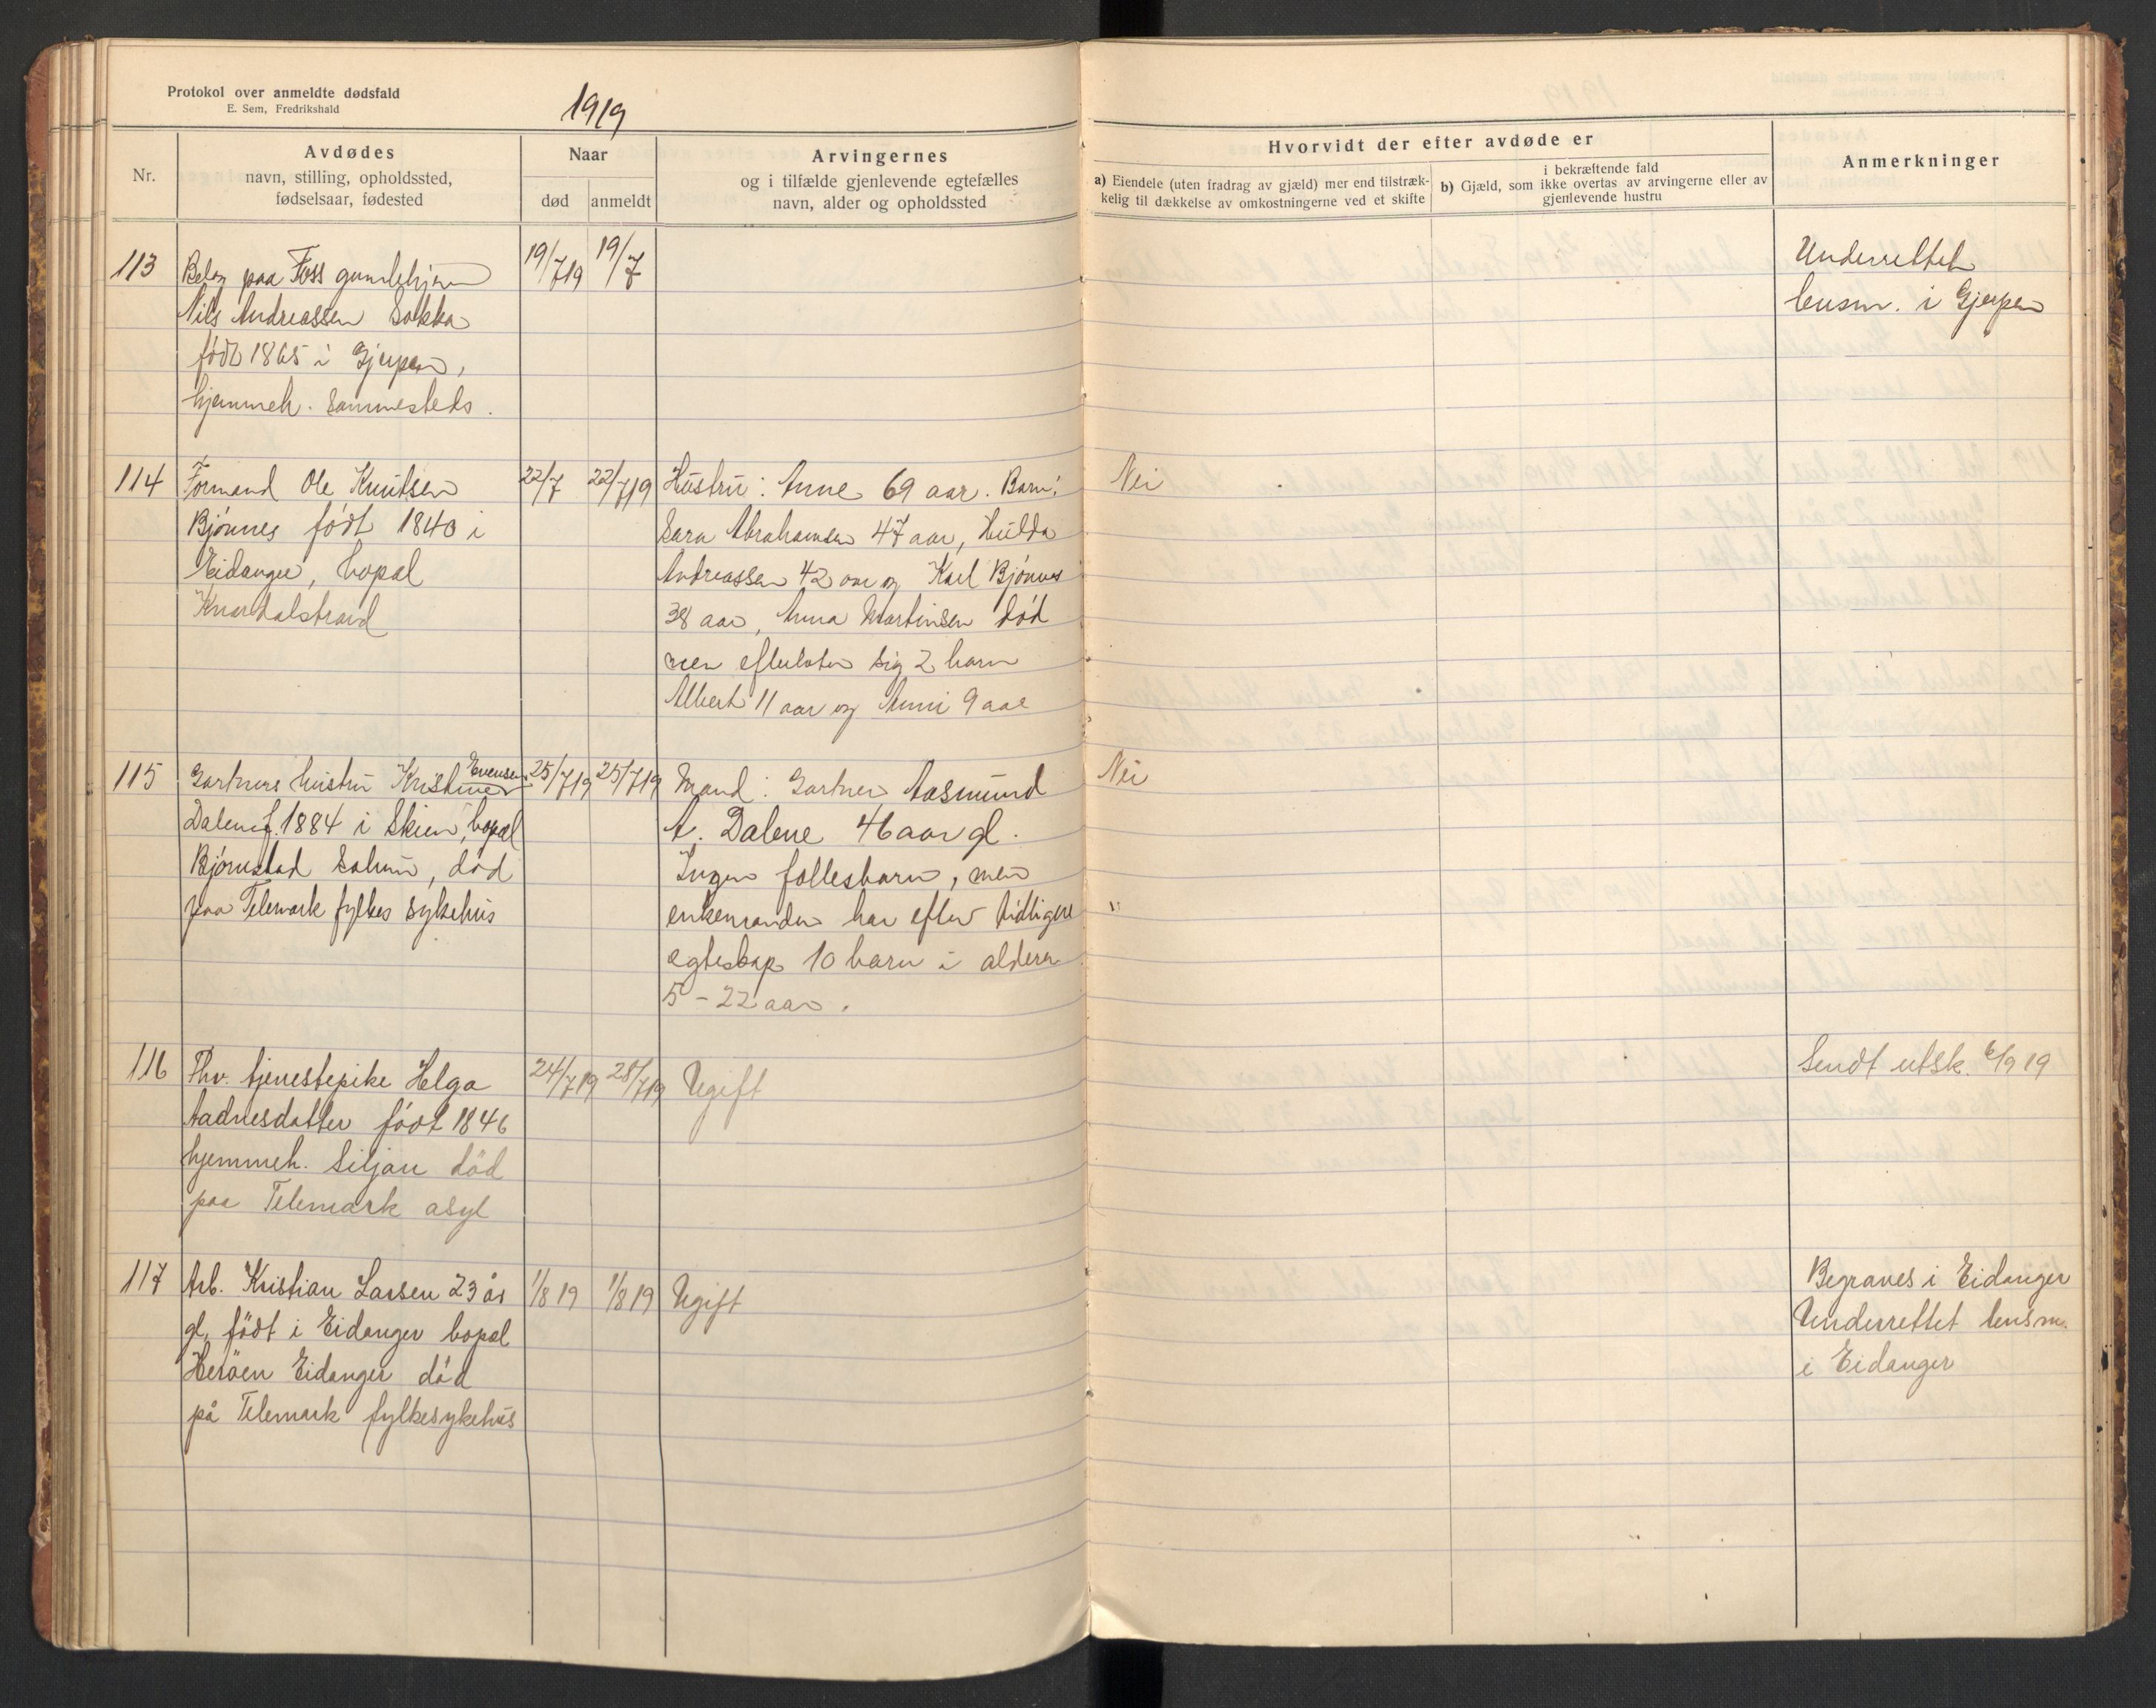 Protokol over anmeldte dødsfald
E. Sem, Fredrikshald
1919
Nr.
Avdødes
navn, stilling, opholdssted,
fødselsaar, fødested
Naar
død
anmeldt
Arvingernes
og i tilfælde gjenlevende egtefælles
navn, alder og opholdssted
Hvorvidt der efter avdøde er
a) Eiendele (uten fradrag av gjæld) mer end tilstræk-
kelig til dækkelse av omkostningerne ved et skifte
i bekræftende fald
b) Gjæld, som ikke overtas av arvingerne eller av
gjenlevende hustru
Anmerkninger
113
Belæg paa Foss gamlehjem
Nils Andreassen Bakka
født 1865 i Gjerpen,
hjemmeh. sammesteds.
19/7 19
19/7
Underrettet
lensm. i Gjerpen
114
Formand Ole Knutsen
Bjønnes født 1840 i
Eidanger, bopæl
Knardalstrand
22/7
22/7 19
Hustru: Anne 69 aar. Barn:
Sara Abrahamsen 47 aar, Hulda
Andreassen 42 aar og Karl Bjønnes
38 aar, Anna Martinsen død
men efterlater sig 2 barn
Albert 11 aar og Anni 9 aar
Nei
115
Gartners hustru Kristine Evensen
Dalene f. 1884 i Skien, bopæl
Bjørnstad Solum, død
paa Telemark fylkes sykehus
25/7 19
25/7 19
Mand: Gartner Aasmund
A. Dalene 46 aar gl.
Ingen fællesbarn, men
enkemanden har efter tidligere
egteskap 10 barn i alderen
5 - 22 aar.
Nei
"
116
Fhv. tjenestepike Helga
Aadnesdatter født 1846
hjemmeh. Siljan död
paa Telemark asyl
24/7 19
28/7 19
Ugift
Sendt utsk. 6/9 19
117
Arb. Kristian Larsen 23 år
gl, födt i Eidanger bopæl
Heröen Eidanger död
på Telemark fylkesykehus
1/8 19
1/8 19
Ugift
Begraves i Eidanger
Underrettet lensm.
i Eidanger